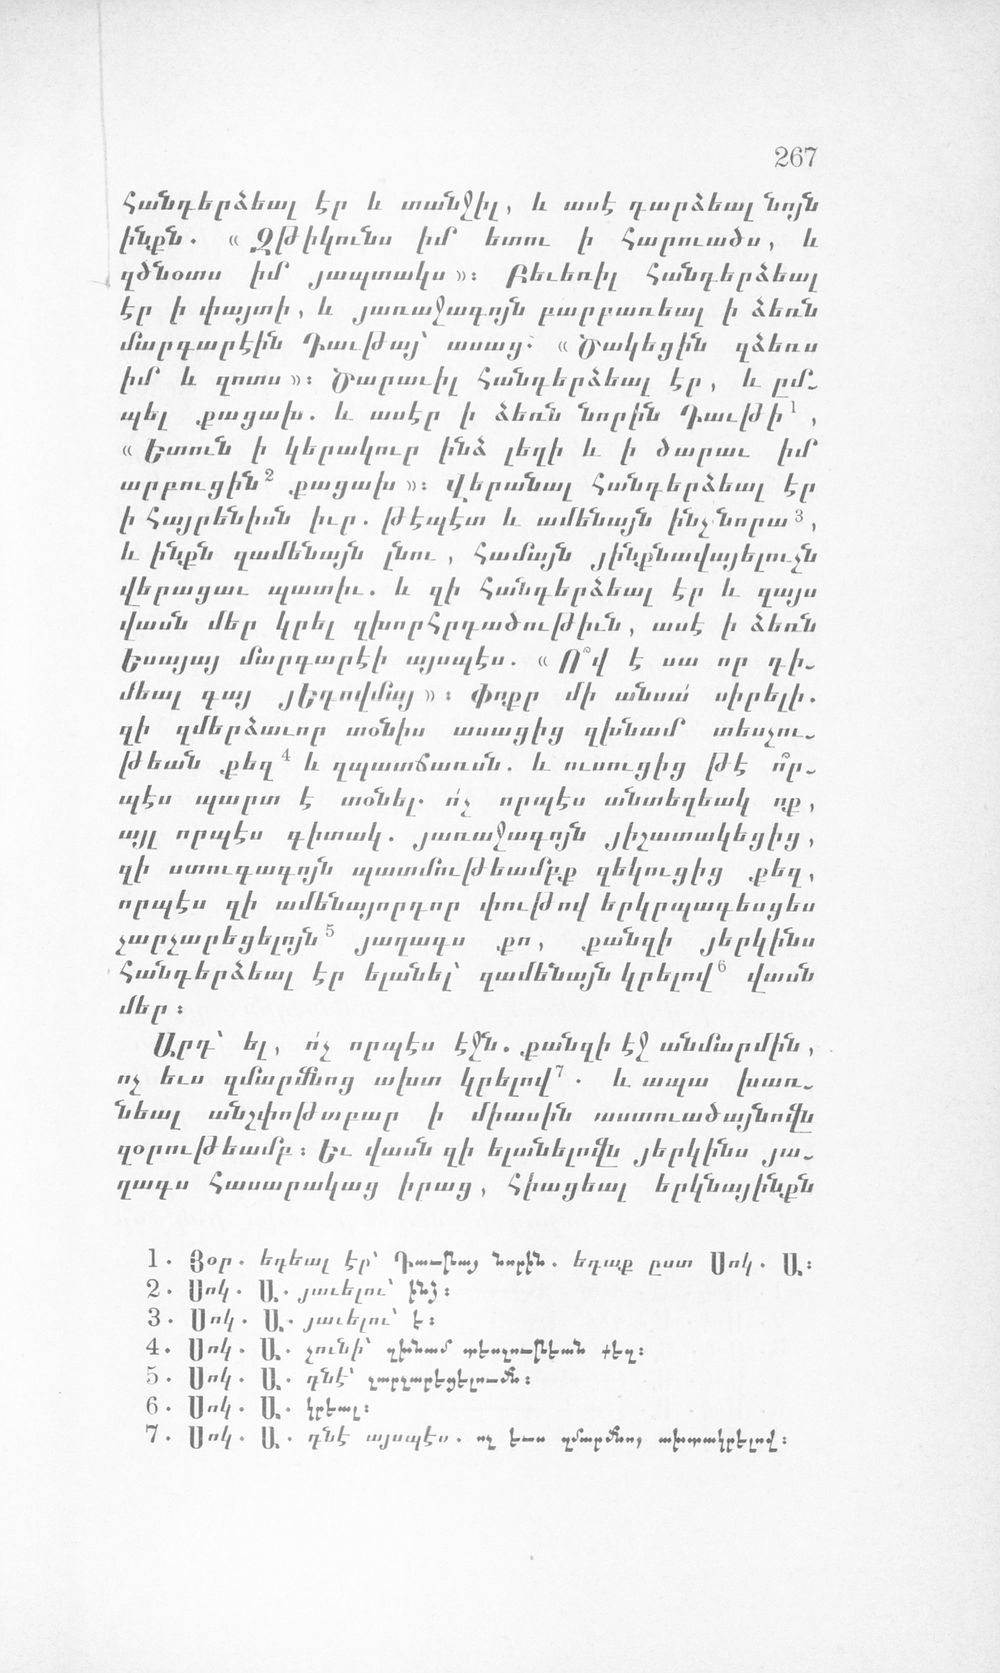 267
հանդերձեալ էր և տանջիլ, և ասէ դարձեալ նոյն
ինքն. « Զթիկունս իմ ետու ի հարուածս, և
զծնօտս իմ յապտակս »։ Բեւեռիլ հանդերձեալ
էր ի փայտի, և յառաջագոյն բարբառեալ ի ձեռն
մարգարէին Դաւթայ՝ ասաց. « Ծակեցին զձեռս
իմ և զոտս »։ Ծարաւիլ հանդերձեալ էր, և ըմ֊
պել քացախ. և ասէր ի ձեռն նորին Դաւթի1,
« Ետուն ի կերակուր ինձ լեղի և ի ծարաւ իմ
արբուցին2 քացախ »։ Վերանալ հանդերձեալ էր
ի Հայրենիսն իւր. թէպէտ և ամենայն ինչ նորա3,
և ինքն զամենայն լնու, համայն յինքնավայելուչն
վերացաւ պատիւ. և զի հանդերձեալ էր և զայս
վասն մեր կրել զխորհրդածութիւն, ասէ ի ձեռն
Եսայայ մարգարէի այսպէս. « Ո՞վ է սա որ դի֊
մեալ գայ յԵդովմայ »։ Փոքր մի անսա՛ սիրելի.
զի զմերձաւոր տօնիս ասացից զխնամ տեսչու֊
թեան քեզ4 և զպատճառսն. և ուսուցից թէ ո՞ր֊
պէս պարտ է տօնել. ո՛չ որպէս անտեղեակ ոք,
այլ որպէս գիտակ. յառաջագոյն յիշատակեցից,
զի ստուգագոյն պատմութեամբք զեկուցից քեզ,
որպէս զի ամենայորդոր փութով երկրպագեսցես
չարչարեցելոյն5 յաղագս քո, քանզի յերկինս
հանդերձեալ էր ելանել՝ զամենայն կրելով6 վասն
մեր։
Արդ՝ ել, ո՛չ որպէս էջն. քանզի էջ անմարմին,
ոչ եւս զմարմնոց ախտ կրելով7. և ապա խառ֊
նեալ անշփոթաբար ի միասին աստուածայնովն
զօրութեամբ։ Եւ վասն զի ելանելովն յերկինս յա֊
ղագս հասարակաց իրաց, հիացեալ երկնայինքն
1. Յօր. եդեալ էր՝ Դաւթայ նորին. եդաք ըստ Սոկ. Ա։
2. Սոկ. Ա. յաւելու՝ ինձ։
3. Սոկ. Ա. յաւելու՝ է։
4. Սոկ. Ա. չունի՝ զխնամ տեսչութեան քեզ։
5. Սոկ. Ա. դնէ՝ չարչարեցելումն։
6. Սոկ. Ա. կրեալ։
7. Սոկ. Ա. դնէ այսպէս. ոչ եւս զմարմնոյ ախտակրելով։